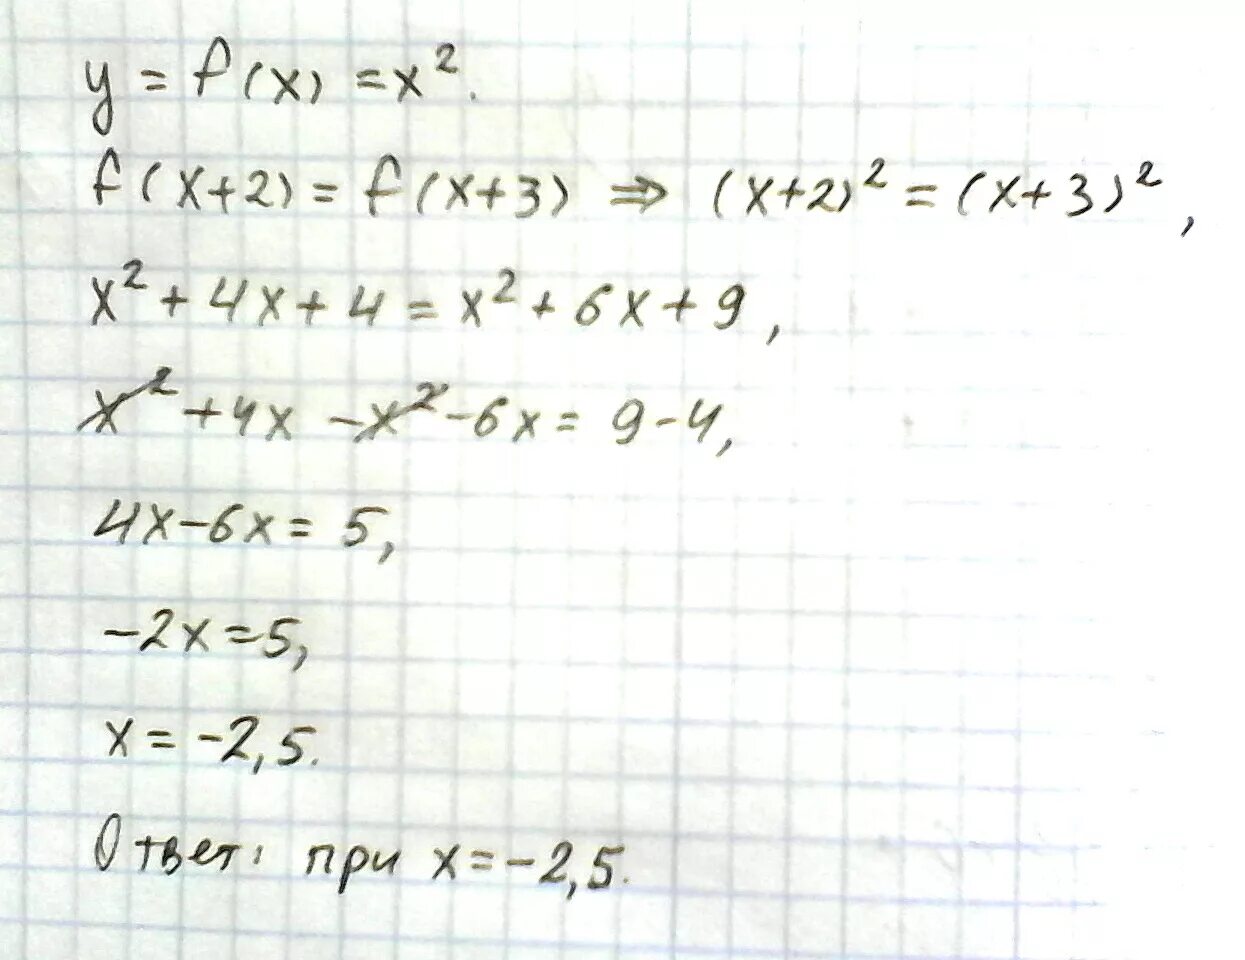 y = f(x) = x².
f(x+2) = f(x+3) ⇒ (x+2)² = (x+3)²,
x² + 4x + 4 = x² + 6x + 9,
x² + 4x - x² - 6x = 9 - 4,
4x - 6x = 5,
-2x = 5,
x = -2,5.
Ответ: при x = -2,5.